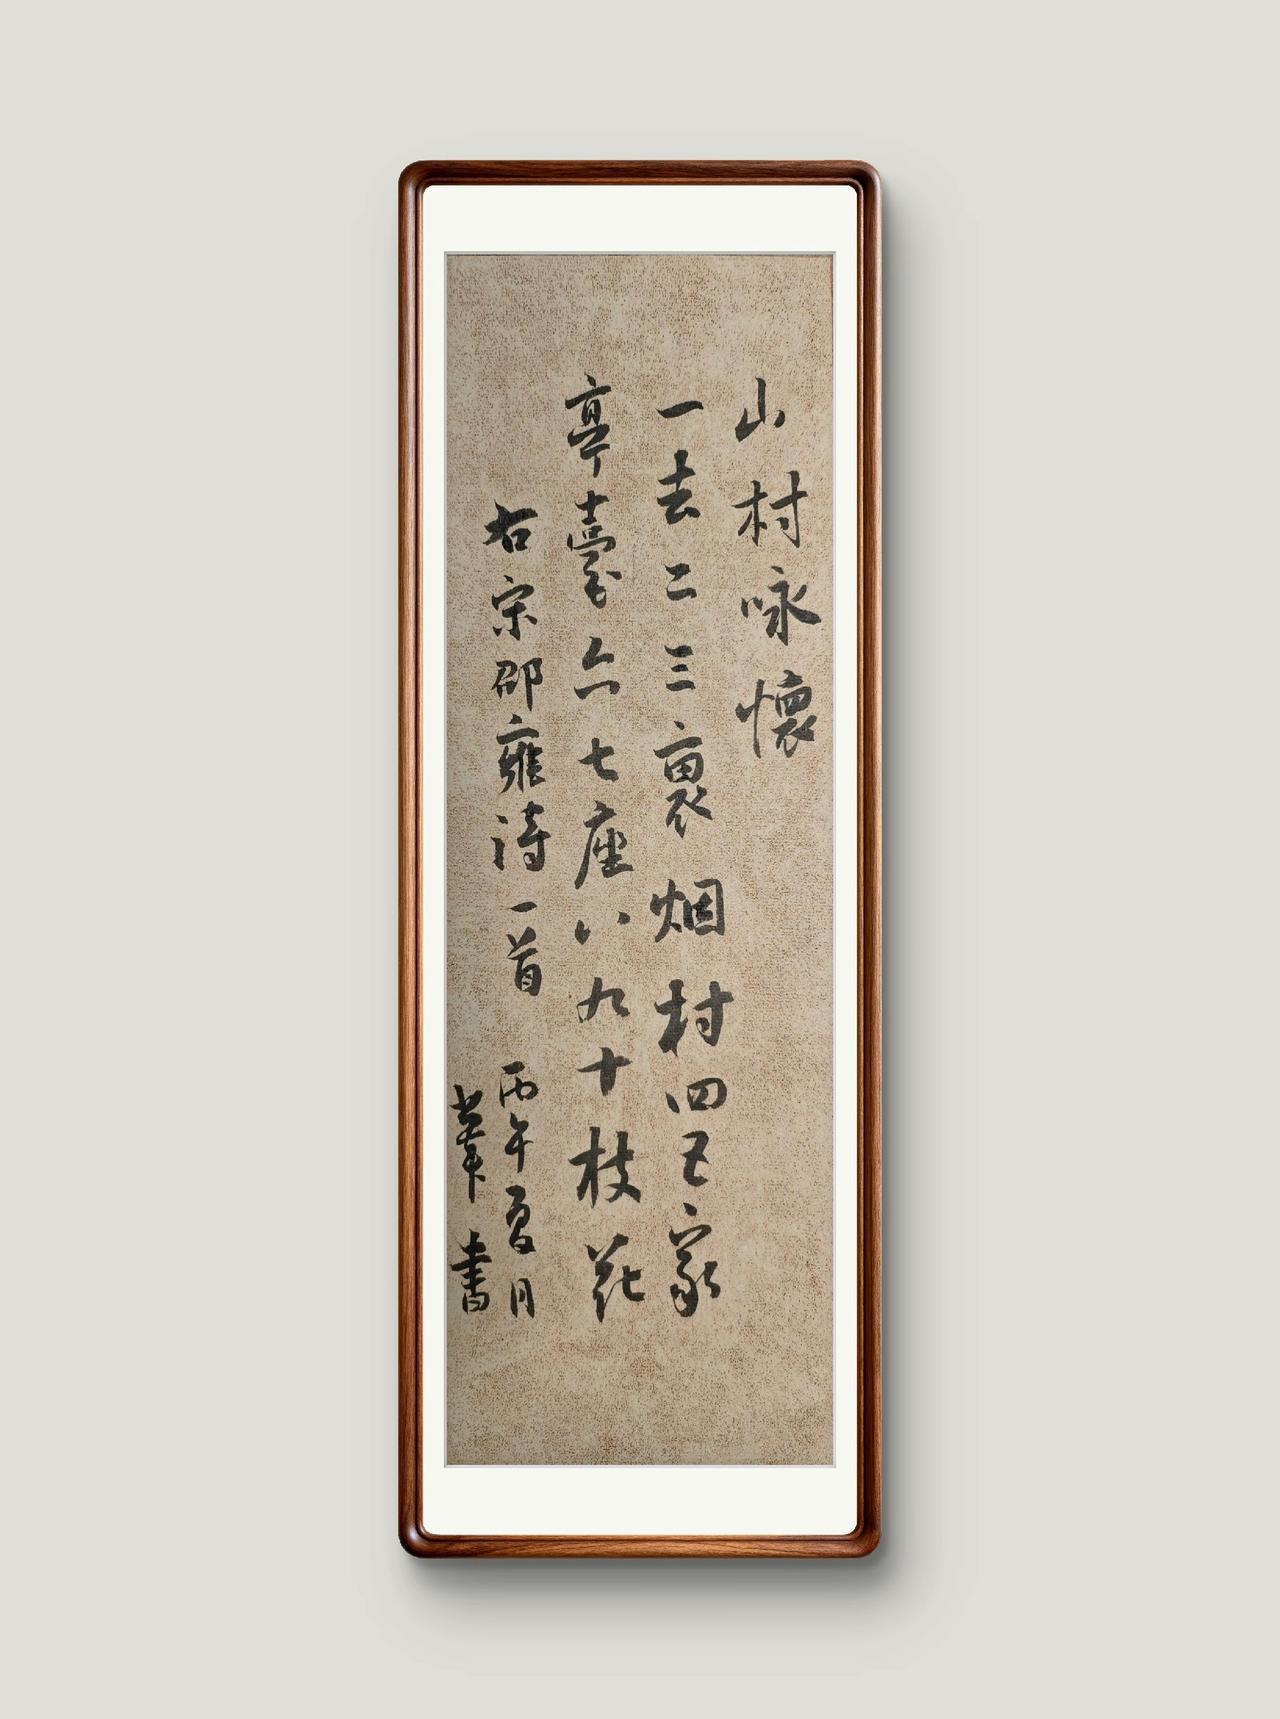 山村咏懷
一去二三裏烟村四五家
亭臺六七座八九十枝花
右宋邵雍诗一首 丙午夏月
書